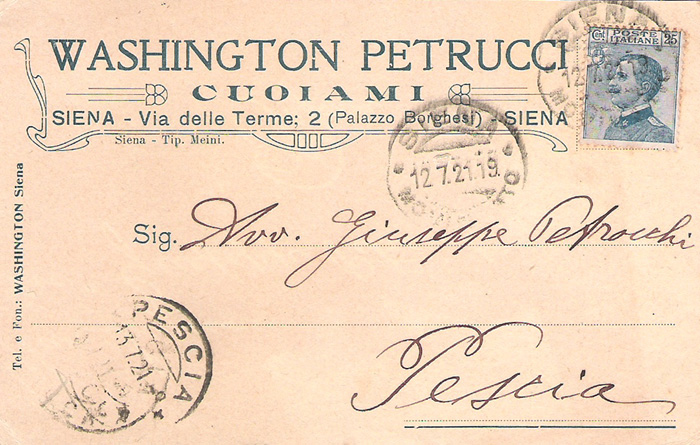 WASHINGTON PETRUCCI
CUOIAMI
SIENA - Via delle Terme; 2 (Palazzo Borghesi) - SIENA
Siena - Tip. Meini.
Cmi 25
POSTE ITALIANE
SIENA
12.7.21.19
Sig. Avv. Giuseppe Petrocchi
Pescia
Tel. e Fon.: WASHINGTON Siena
PESCIA
13.7.21